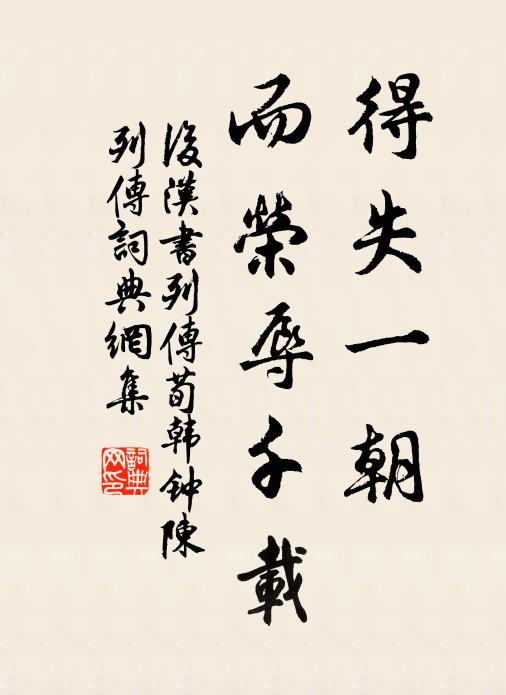 得失一朝
而榮辱千載
後漢書列傳荀韓钟陳
列傳詞典網集
詞典
网印